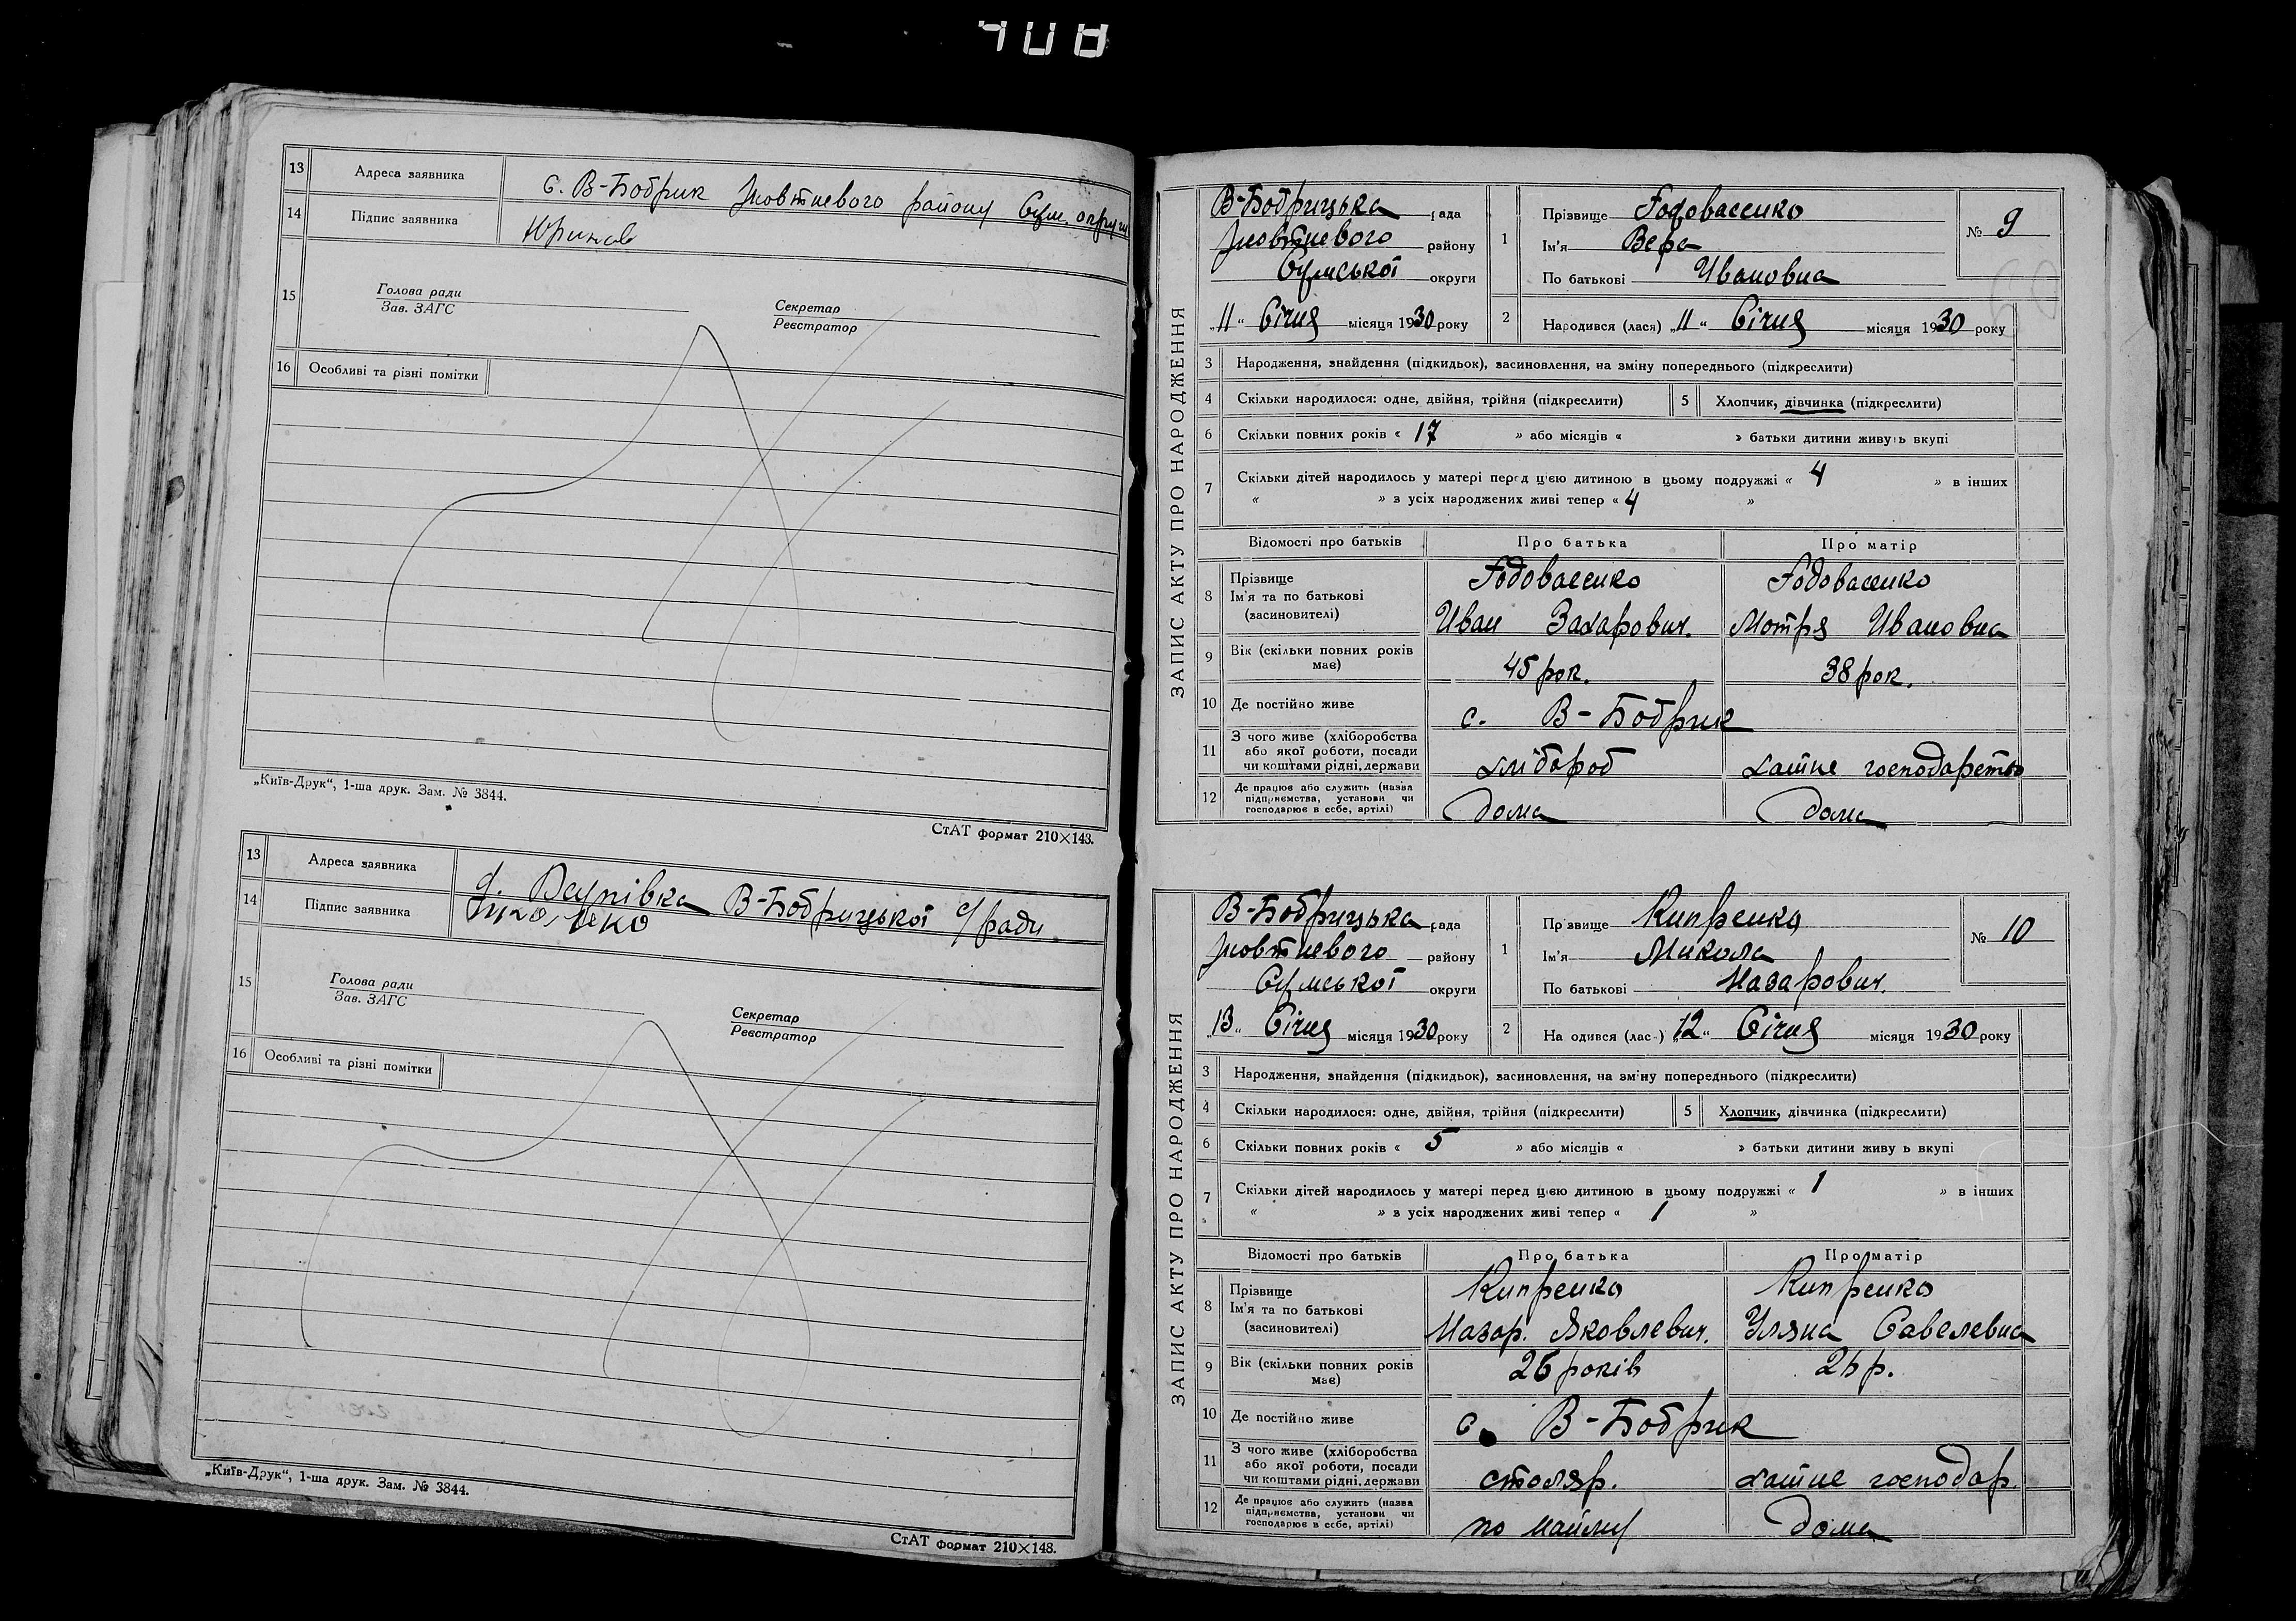 408
13 Адреса заявника с. В-Бобрик Жовтневого району Сум. округи
14 Підпис заявника
15 Голова ради
Зав. ЗАГС
Секретар
Реєстратор
16 Особливі та різні помітки
„Київ-Друк“, 1-ша друк. Зам. № 3844.
СтАТ формат 210×143.
13 Адреса заявника В-Бобрицької с/ради
14 Підпис заявника
15 Голова ради
Зав. ЗАГС
Секретар
Реєстратор
16 Особливі та різні помітки
„Київ-Друк“, 1-ша друк. Зам. № 3844.
СтАТ формат 210×148.
ЗАПИС АКТУ ПРО НАРОДЖЕННЯ
В-Бобрицька рада
Жовтневого району
Сумської округи
„11“ Січня місяця 1930 року
1 Прізвище Годовасенко
Ім'я Вера
По батькові Ивановна
№ 9
2 Народився (лася) „11“ Січня місяця 1930 року
3 Народження, знайдення (підкидьок), засиновлення, на зміну попереднього (підкреслити)
4 Скільки народилося: одне, двійня, трійня (підкреслити) 5 Хлопчик, дівчинка (підкреслити)
6 Скільки повних років « 17 » або місяців « » батьки дитини живуть вкупі
7 Скільки дітей народилось у матері перед цією дитиною в цьому подружжі « 4 » в інших
« » з усіх народжених живі тепер « 4 »
Відомості про батьків Про батька Про матір
8 Прізвище Годовасенко Годовасенко
Ім'я та по батькові
(засиновителі) Иван Захарович. Мотря Ивановна
9 Вік (скільки повних років має) 45 рок. 38 рок.
10 Де постійно живе с. В-Бобрик
11 З чого живе (хліборобства
або якої роботи, посади
чи коштами рідні, держави хлібороб хатне господарство
12 Де працює або служить (назва
підприємства, установи чи
господарює в себе, артілі) дома дома
ЗАПИС АКТУ ПРО НАРОДЖЕННЯ
В-Бобрицька рада
Жовтневого району
Сумської округи
„13“ Січня місяця 1930 року
1 Прізвище Кипренко
Ім'я Микола
По батькові Назарович.
№ 10
2 Народився (лася) „12“ Січня місяця 1930 року
3 Народження, знайдення (підкидьок), засиновлення, на зміну попереднього (підкреслити)
4 Скільки народилося: одне, двійня, трійня (підкреслити) 5 Хлопчик, дівчинка (підкреслити)
6 Скільки повних років « 5 » або місяців « » батьки дитини живуть вкупі
7 Скільки дітей народилось у матері перед цією дитиною в цьому подружжі « 1 » в інших
« » з усіх народжених живі тепер « 1 »
Відомості про батьків Про батька Про матір
8 Прізвище Кипренко Кипренко
Ім'я та по батькові
(засиновителі) Назар. Яковлевич. Уляна Савелевна
9 Вік (скільки повних років має) 26 років 26 р.
10 Де постійно живе с. В-Бобрик
11 З чого живе (хліборобства
або якої роботи, посади
чи коштами рідні, держави столяр. хатне господар.
12 Де працює або служить (назва
підприємства, установи чи
господарює в себе, артілі) по найму дома